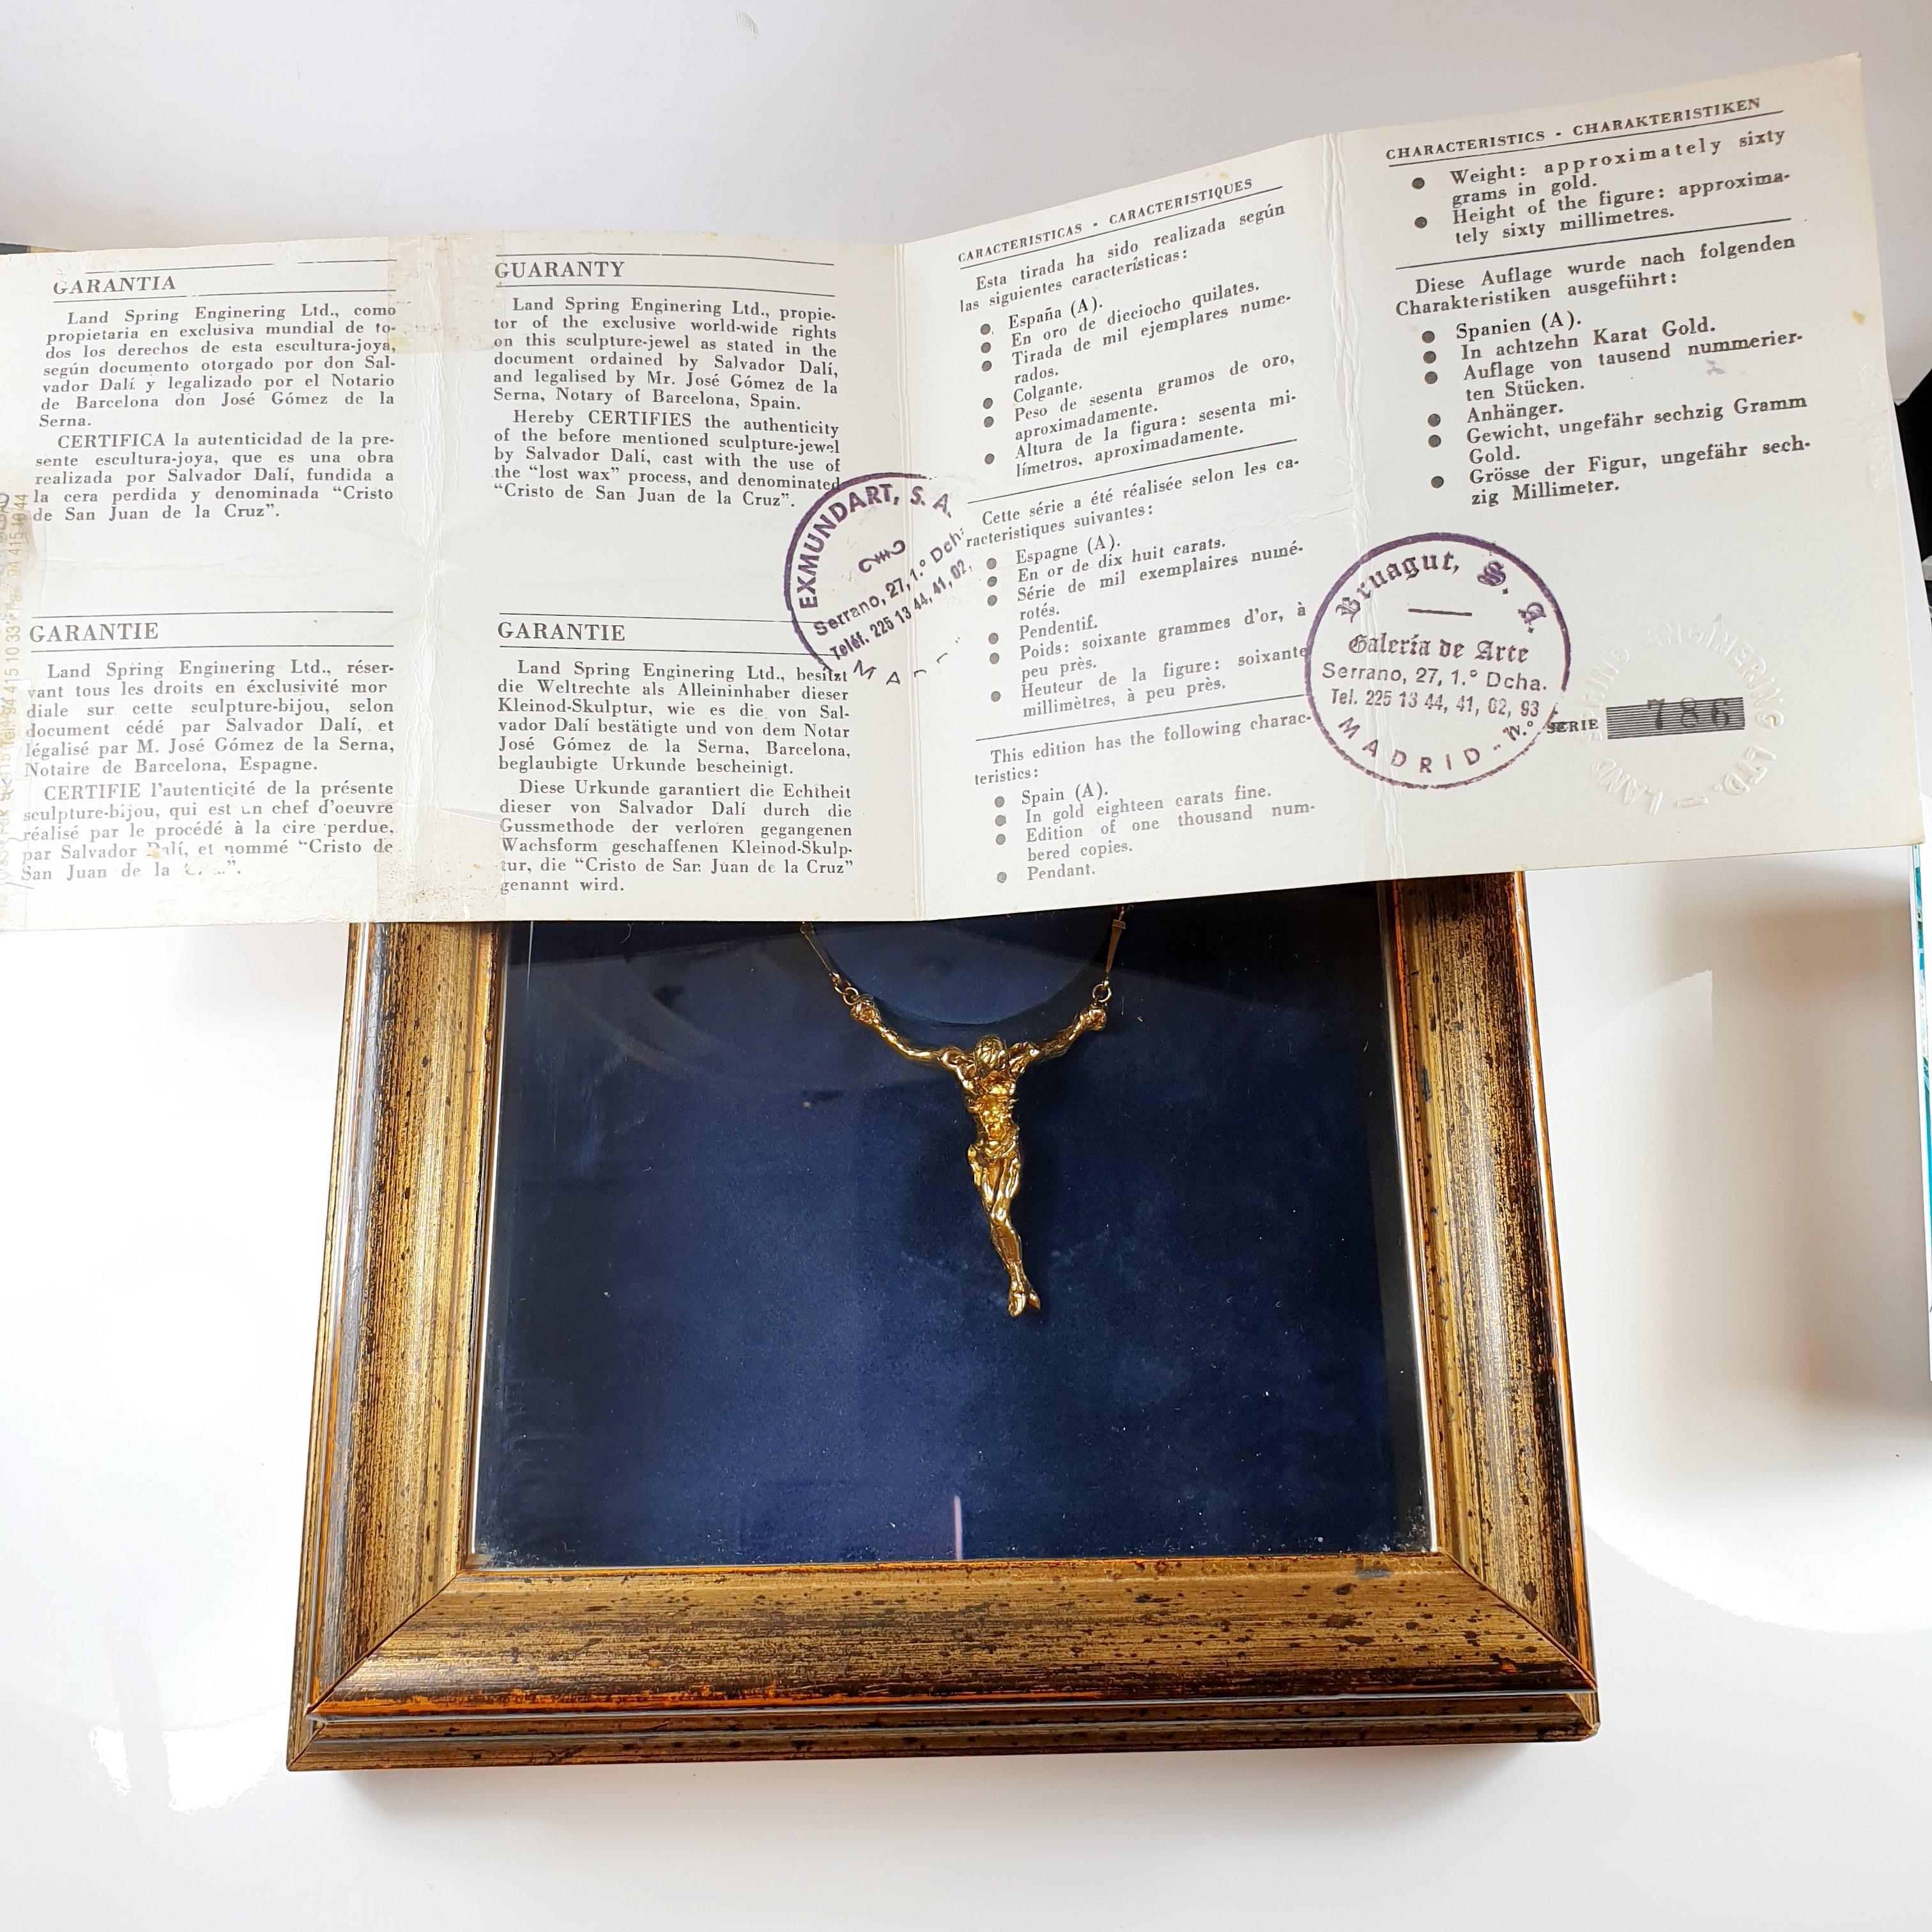 GARANTIA
Land Spring Enginering Ltd., como
propietaria en exclusiva mundial de to-
dos los derechos de esta escultura-joya,
según documento otorgado por don Sal-
vador Dalí y legalizado por el Notario
de Barcelona don José Gómez de la
Serna.
CERTIFICA la autenticidad de la pre-
sente escultura-joya, que es una obra
realizada por Salvador Dalí, fundida a
la cera perdida y denominada “Cristo
de San Juan de la Cruz”.
GARANTIE
Land Spring Enginering Ltd., réser-
vant tous les droits en éxclusivité mor
diale sur cette sculpture-bijou, selon
document cédé par Salvador Dalí, et
légalisé par M. José Gómez de la Serna,
Notaire de Barcelona, Espagne.
CERTIFIE l'autenticité de la présente
sculpture-bijou, qui est un chef d'oeuvre
réalisé par le procédé à la cire perdue,
par Salvador Dalí, et nommé “Cristo de
San Juan de la
GUARANTY
Land Spring Enginering Ltd., propie-
tor of the exclusive world-wide rights
on this sculpture-jewel as stated in the
document ordained by Salvador Dalí,
and legalised by Mr. José Gómez de la
Serna, Notary of Barcelona, Spain.
Hereby CERTIFIES the authenticity
of the before mentioned sculpture-jewel
by Salvador Dalí, cast with the use of
the “lost wax” process, and denominated
“Cristo de San Juan de la Cruz”.
GARANTIE
Land Spring Enginering Ltd., besitzt
die Weltrechte als Alleininhaber dieser
Kleinod-Skulptur, wie es die von Sal-
vador Dalí bestätigte und von dem Notar
José Gómez de la Serna, Barcelona,
beglaubigte Urkunde bescheinigt.
Diese Urkunde garantiert die Echtheit
dieser von Salvador Dalí durch die
Gussmethode der verloren gegangenen
Wachsform geschaffenen Kleinod-Skulp-
tur, die “Cristo de San Juan de la Cruz”
genannt wird.
EXMUNDART, S. A.
Serrano, 27, 1.º Dcha
Teléf. 225 13 44, 41, 02,
CARACTERISTICAS - CARACTERISTIQUES
Esta tirada ha sido realizada según
las siguientes características:
● España (A).
● En oro de dieciocho quilates.
● Tirada de mil ejemplares nume-
rados.
● Colgante.
● Peso de sesenta gramos de oro,
aproximadamente.
● Altura de la figura: sesenta mi-
límetros, aproximadamente.
Cette série a été réalisée selon les ca-
racteristiques suivantes:
● Espagne (A).
● En or de dix huit carats.
● Série de mil exemplaires numé-
rotés.
● Pendentif.
● Poids: soixante grammes d'or, à
peu près.
● Heuteur de la figure: soixante
millimètres, à peu près.
This edition has the following charac-
teristics:
● Spain (A).
● In gold eighteen carats fine.
● Edition of one thousand num-
bered copies.
● Pendant.
CHARACTERISTICS - CHARAKTERISTIKEN
● Weight: approximately sixty
grams in gold.
● Height of the figure: approxima-
tely sixty millimetres.
Diese Auflage wurde nach folgenden
Charakteristiken ausgeführt:
● Spanien (A).
● In achtzehn Karat Gold.
● Auflage von tausend nummerier-
ten Stücken.
● Anhänger.
● Gewicht, ungefähr sechzig Gramm
Gold.
● Grösse der Figur, ungefähr sech-
zig Millimeter.
Bruagut, S. A.
Galería de Arte
Serrano, 27, 1.º Dcha.
Tel. 225 13 44, 41, 02, 93
MADRID
N.º SERIE 786
LAND SPRING ENGINERING LTD.